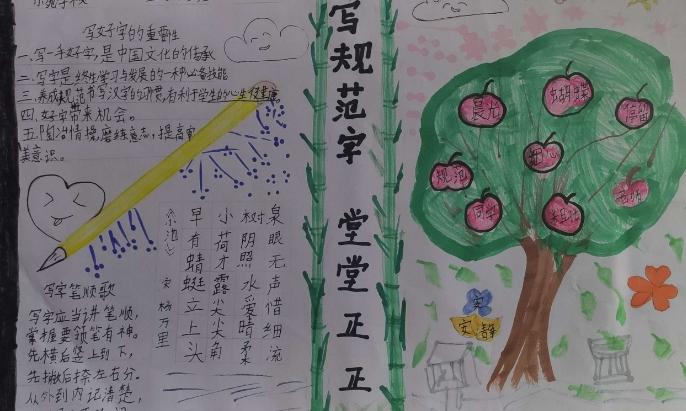 小苑学校
写好字的重要性
一、写一手好字,是中国文化的传承
二、写字是终生学习与发展的一种必备技能
三、养成规范书写汉字的习惯,有利于学生的心生健康
四、好字带来机会。
五、陶冶情操磨练意志,提高审
美意识。
写字笔顺歌
写字应当讲笔顺,
掌握要领笔有神。
先横后竖上到下,
先撇后捺左右分。
从外到内记清楚,
《小池》
宋 杨万里
泉眼无声惜细流
树阴照水爱晴柔
小荷才露尖尖角
早有蜻蜓立上头
写规范字 堂堂正正
晨光
蝴蝶
停留
规范
同学
安
安静